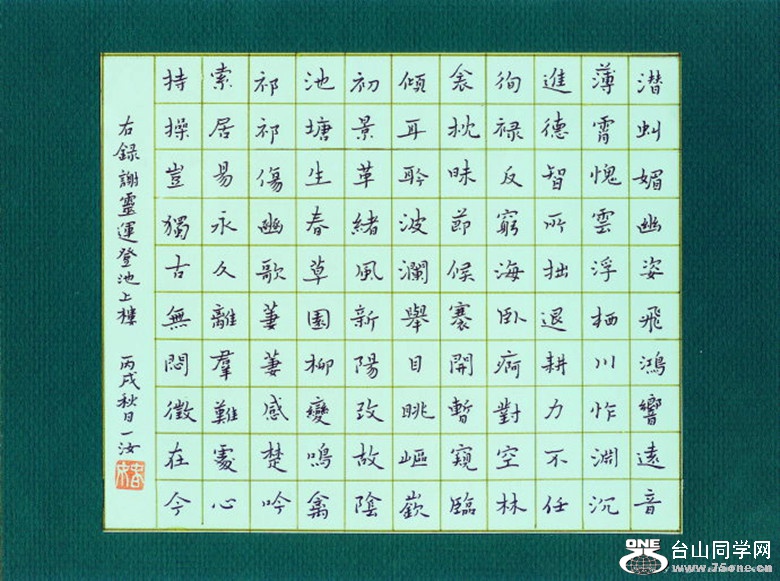 潜虯媚幽姿飛鴻響遠音
薄霄愧雲浮栖川怍淵沉
進德智所拙退耕力不任
徇禄反窮海卧痾對空林
衾枕昧節候褰開暫窺臨
傾耳聆波瀾舉目眺嶇嶔
初景革緒風新陽改故陰
池塘生春草園柳變鳴禽
祁祁傷幽歌萋萋感楚吟
索居易永久離羣難處心
持操豈獨古無悶徵在今
右録謝靈運登池上樓 丙戌秋日一汝
ONE
台山同学网
www.75one.cn